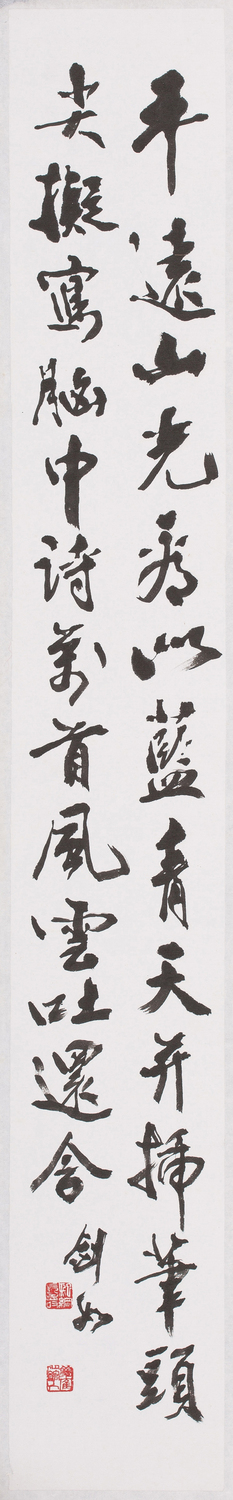 平遠山光看似藍青天并插筆頭
尖擬寫胸中詩萬首風雲吐還含
劍如